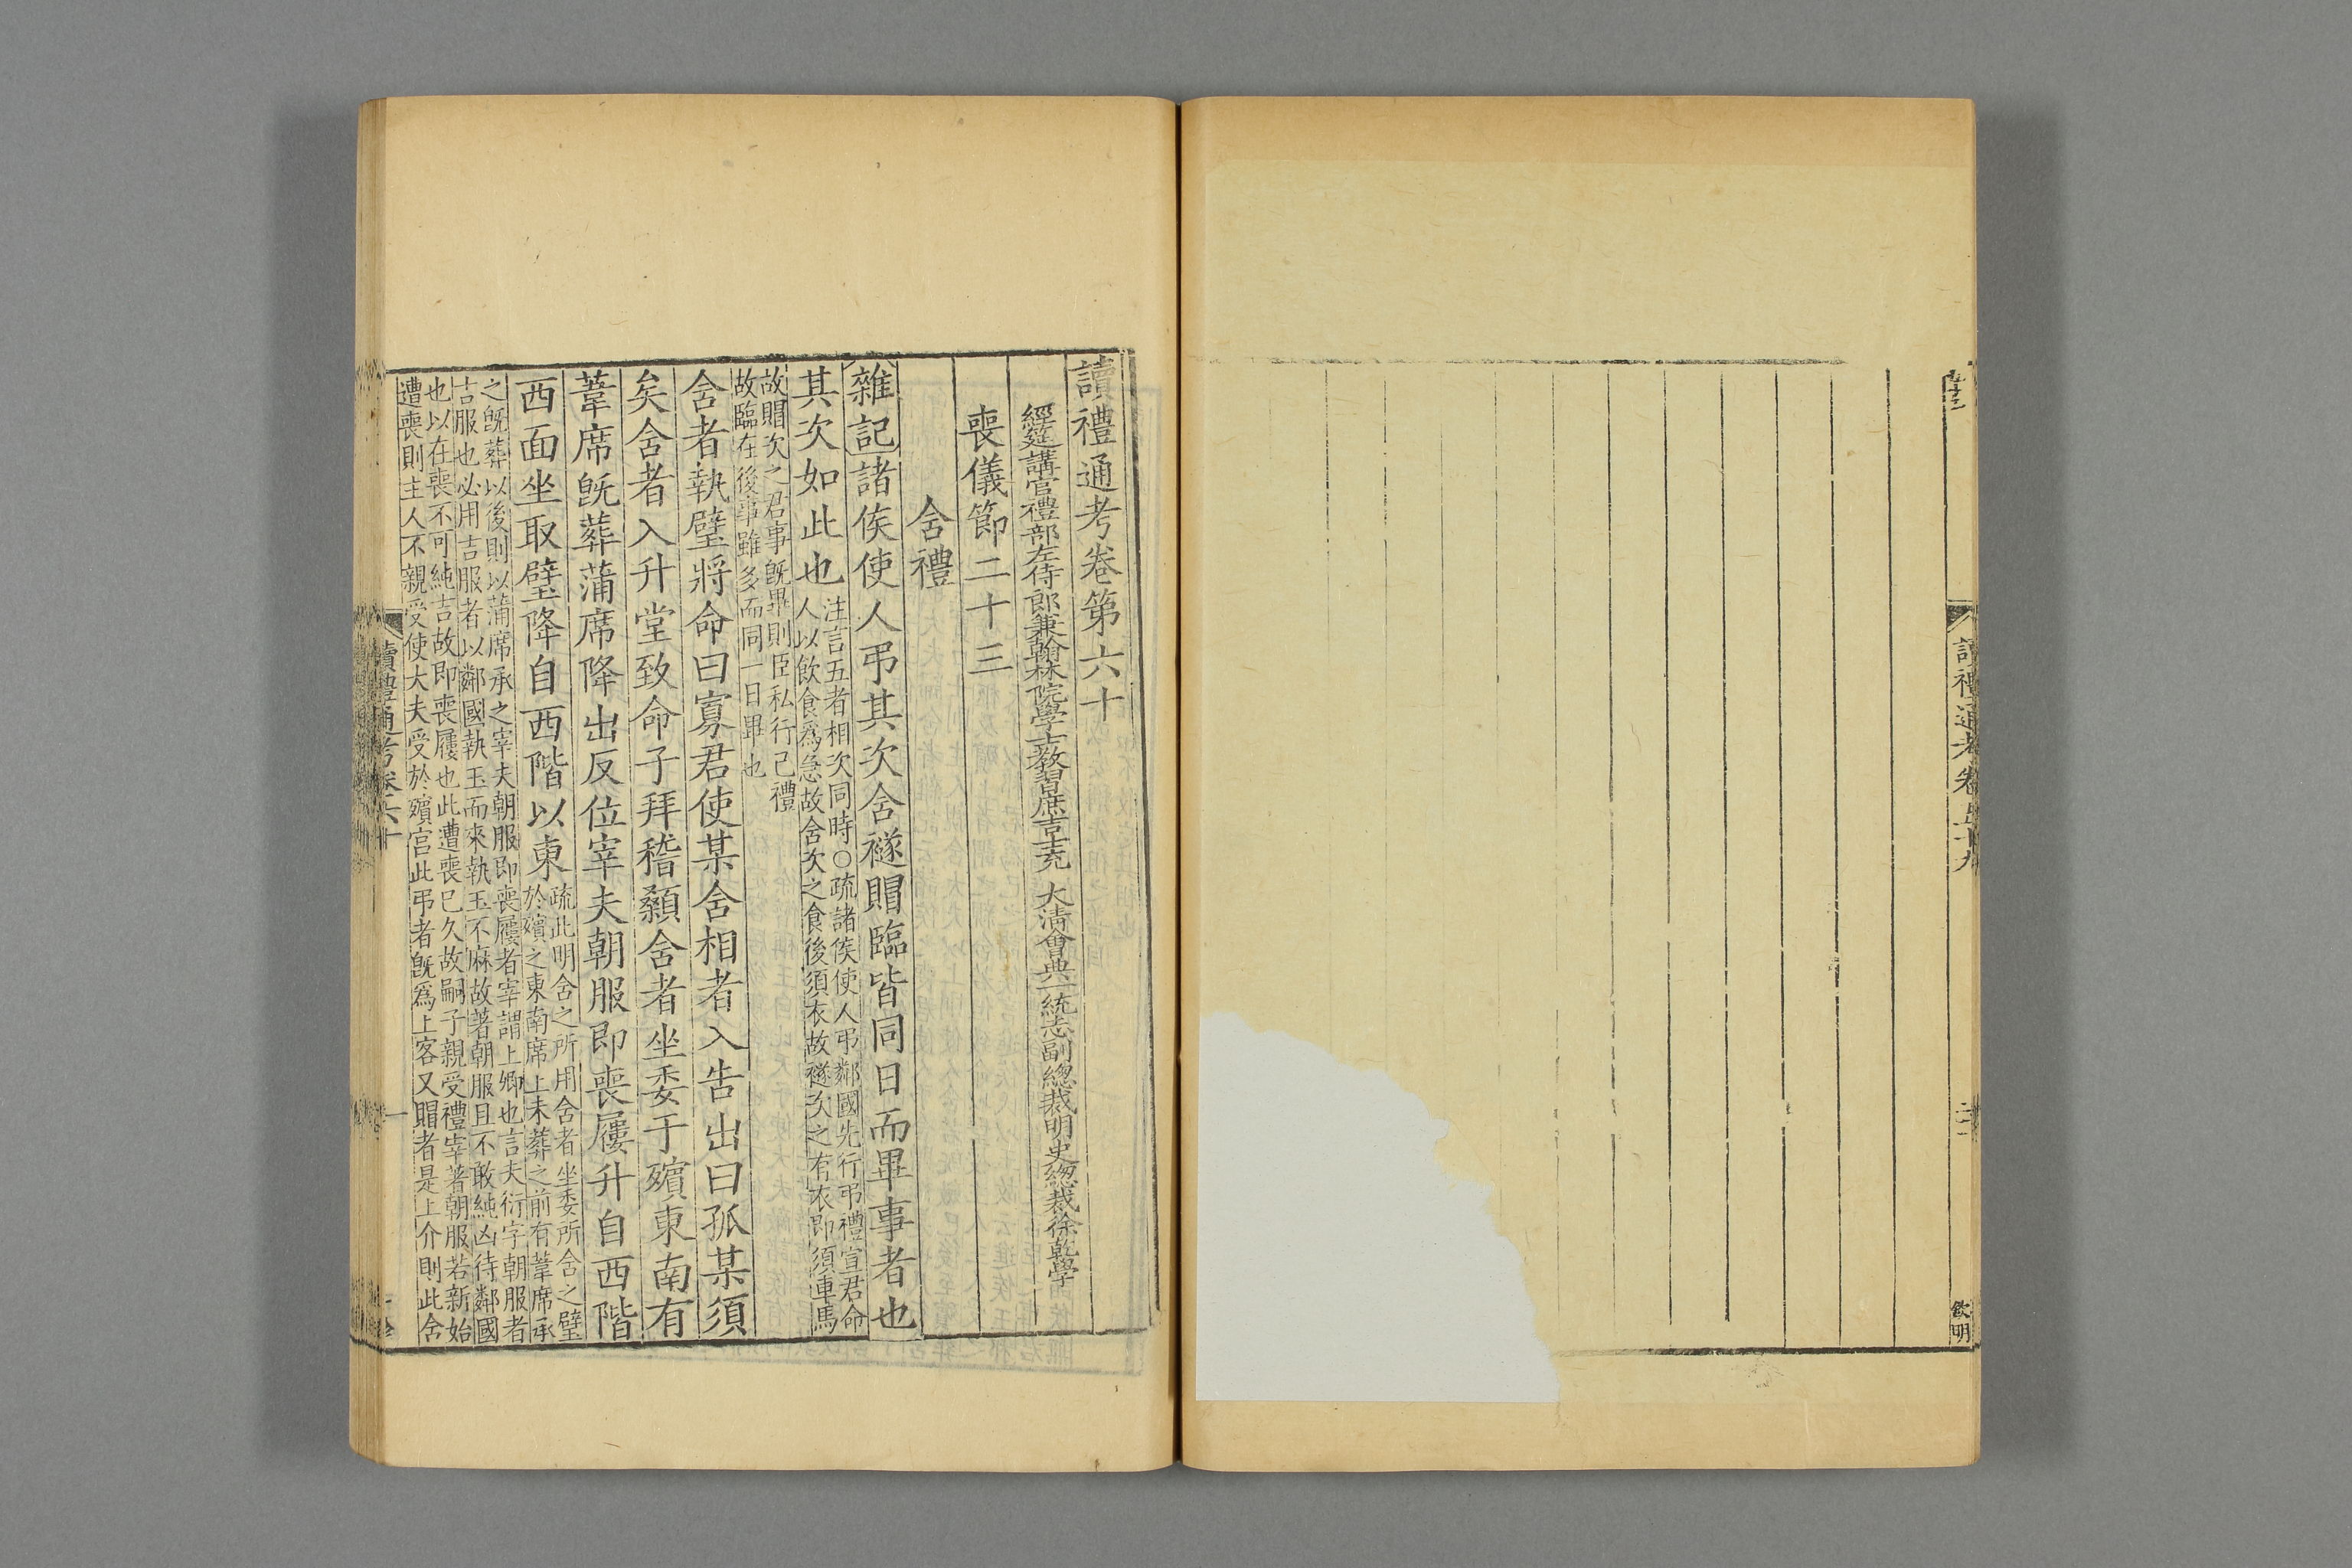 讀禮通考卷五十九
欽明
讀禮通考卷第六十
經筵講官禮部左侍郎兼翰林院學士教習庶吉士充 大清會典一統志副總裁明史總裁徐乾學
喪儀節二十三
含禮
雜記諸侯使人弔其次含襚賵臨皆同日而畢事者也
其次如此也
注言五者相次同時○疏諸侯使人弔鄰國先行弔禮宣君命
人以飲食為急故含次之食後須衣故襚次之有衣即須車馬
故賵次之君事旣畢則臣私行己禮
故臨在後事雖多而同一日畢也
含者執璧將命曰寡君使某含相者入告出曰孤某須
矣含者入升堂致命子拜稽顙含者坐委于殯東南有
葦席旣葬蒲席降出反位宰夫朝服即喪屨升自西階
西面坐取璧降自西階以東
疏此明含之所用含者坐委所含之璧
於殯之東南席上未葬之前有葦席承
之旣葬以後則以蒲席承之宰夫朝服即喪屨者宰謂上卿也言夫衍字朝服者
吉服也必用吉服者以鄰國執玉而來執玉不麻故著朝服且不敢純凶待鄰國
也以在喪不可純吉故即喪屨也此遭喪已久故嗣子親受禮宰著朝服若新始
遭喪則主人不親受使大夫受於殯宮此弔者旣為上客又賵者是上介則此含
讀禮通考卷六十
一